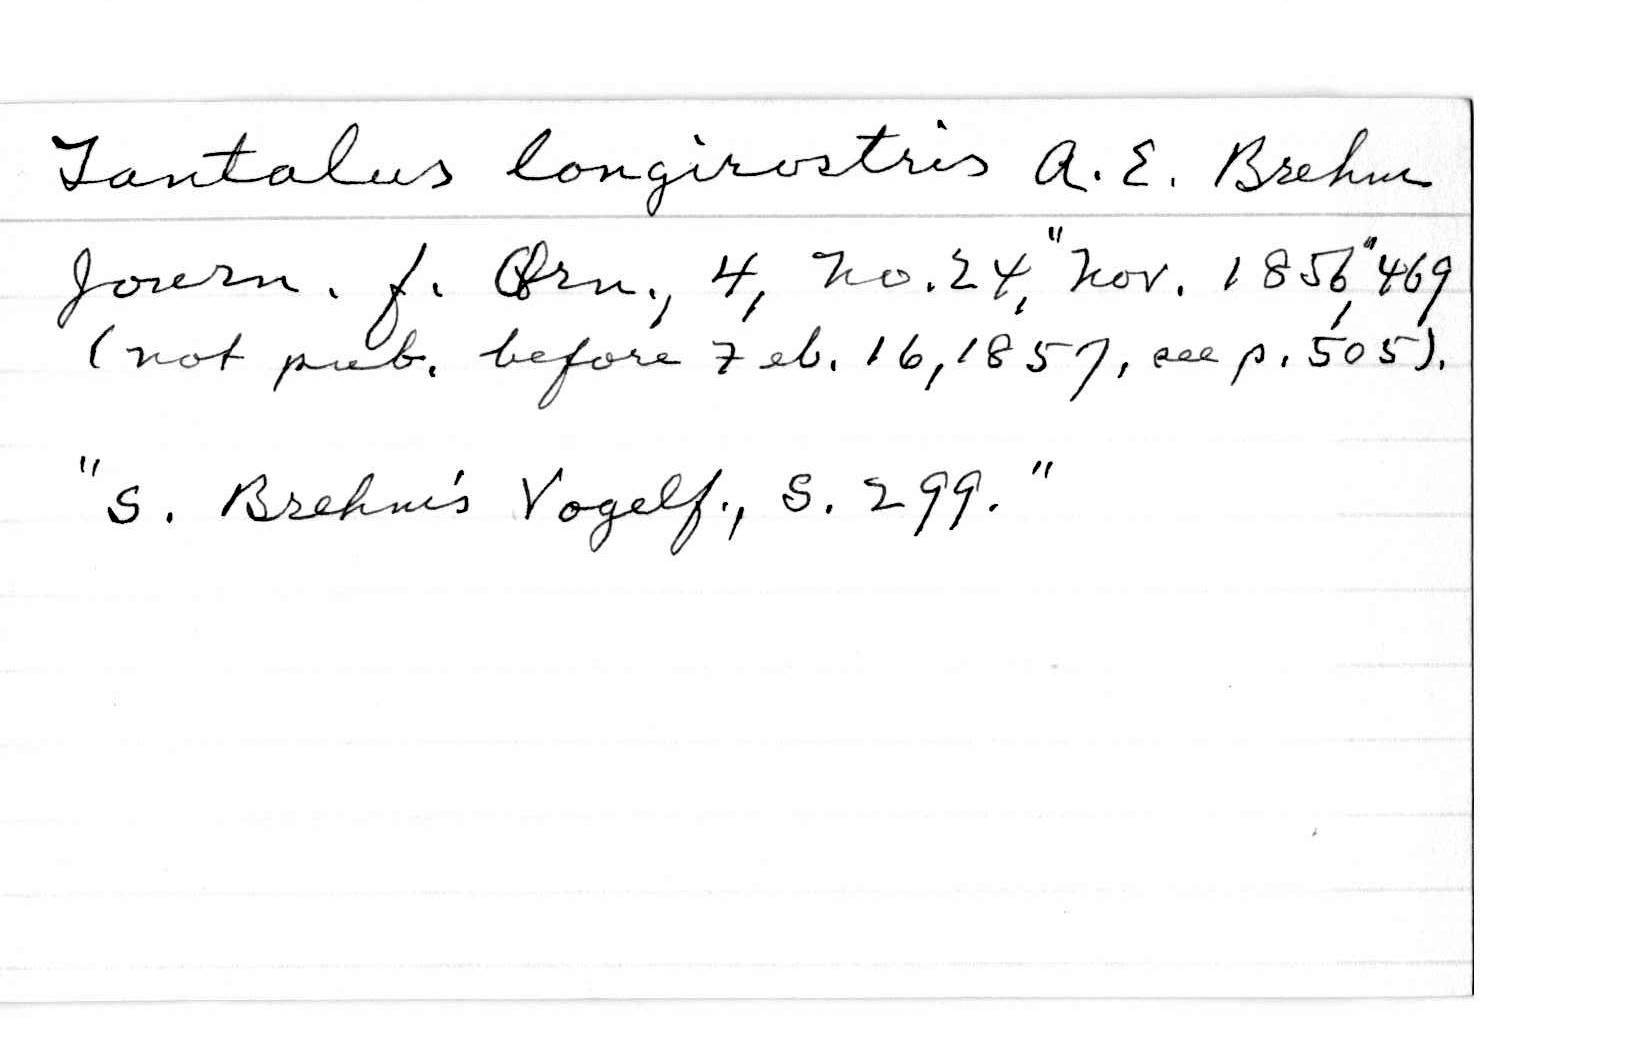 Tantalus longirostris A. E. Brehm
Journ. f. Orn., 4, no. 24, "Nov. 1856," 469
(not pub. before Feb. 16, 1857, see p. 505).
"S. Brehm's Vogelf., S. 299."